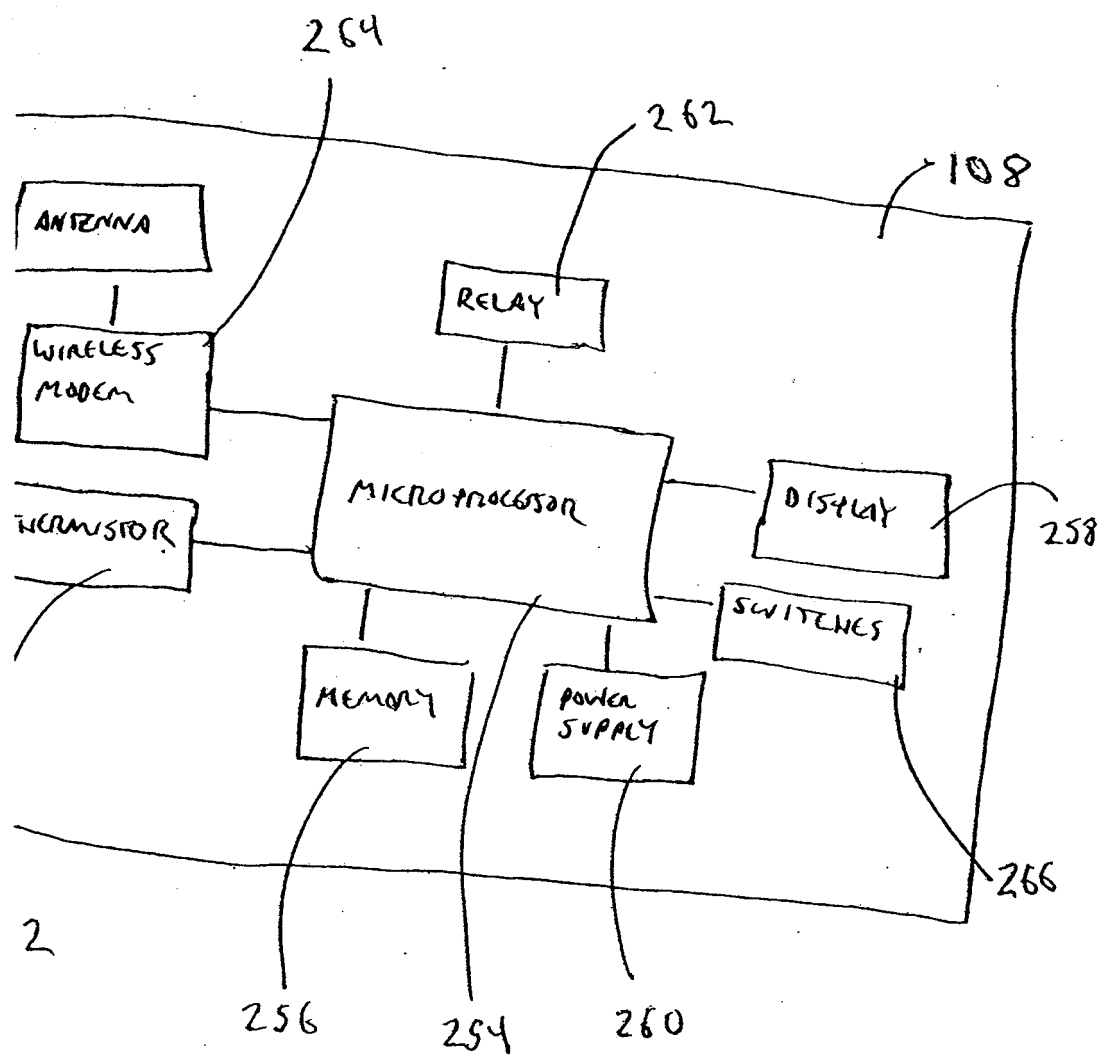 264
262
108
ANTENNA
RELAY
WIRELESS
MODEM
MICROPROCESSOR
DISPLAY
258
HERMISTOR
SWITCHES
MEMORY
POWER
SUPPLY
266
2
256
254
260